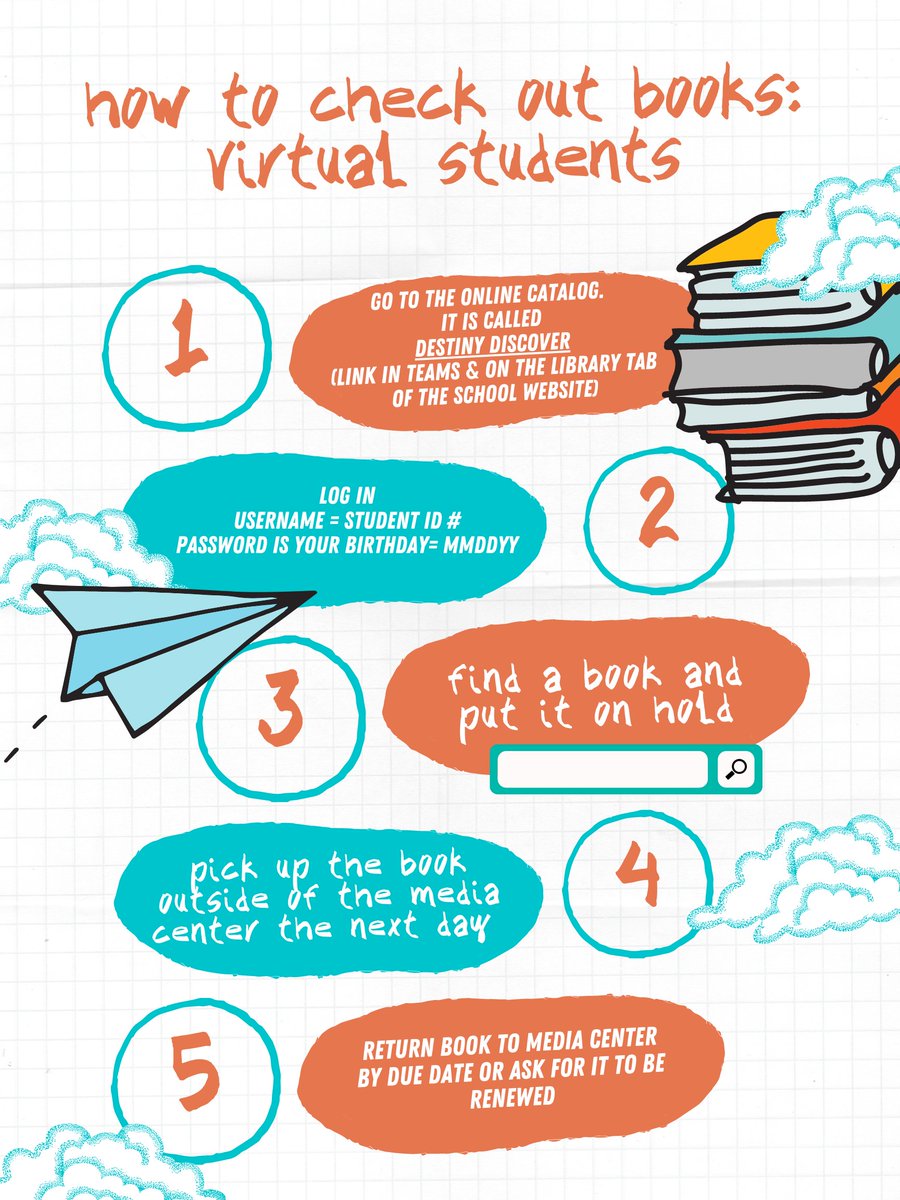 how to check out books:
virtual students
1
GO TO THE ONLINE CATALOG.
IT IS CALLED
DESTINY DISCOVER
(LINK IN TEAMS & ON THE LIBRARY TAB
OF THE SCHOOL WEBSITE)
LOG IN
USERNAME = STUDENT ID #
PASSWORD IS YOUR BIRTHDAY= MMDDYY
2
3
find a book and
put it on hold
pick up the book
outside of the media
center the next day
4
5
RETURN BOOK TO MEDIA CENTER
BY DUE DATE OR ASK FOR IT TO BE
RENEWED